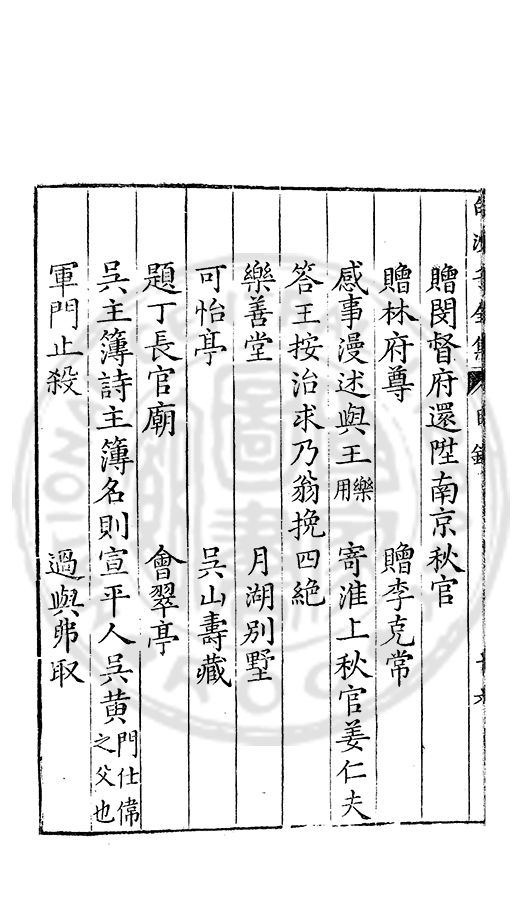 贈閔督府還陞南京秋官
贈林府尊 贈李克常
感事漫述與王樂用 寄淮上秋官姜仁夫
答王按治求乃翁挽四絶
樂善堂 月湖別墅
可怡亭 吳山壽藏
題丁長官廟 會翠亭
吳主簿詩主簿名則宣平人吳黄門仕偉之父也
軍門止殺 過與郍取